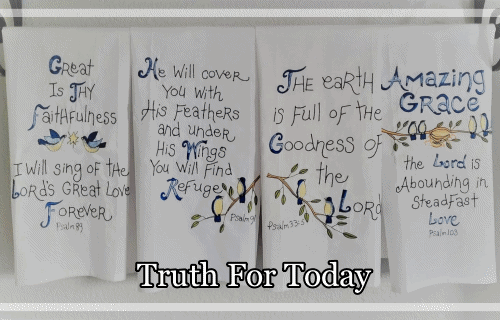 Great
Is Thy
Faithfulness
I Will sing of the
Lord's Great Love
Forever
Psalm 89
He will cover
You with
His Feathers
and under
His Wings
You Will Find
Refuge
Psalm 91
The earth
is Full of the
Goodness of
the
Lord
Psalm 33:5
Amazing
Grace
the Lord is
Abounding in
Steadfast
Love
Psalm 103
Truth For Today